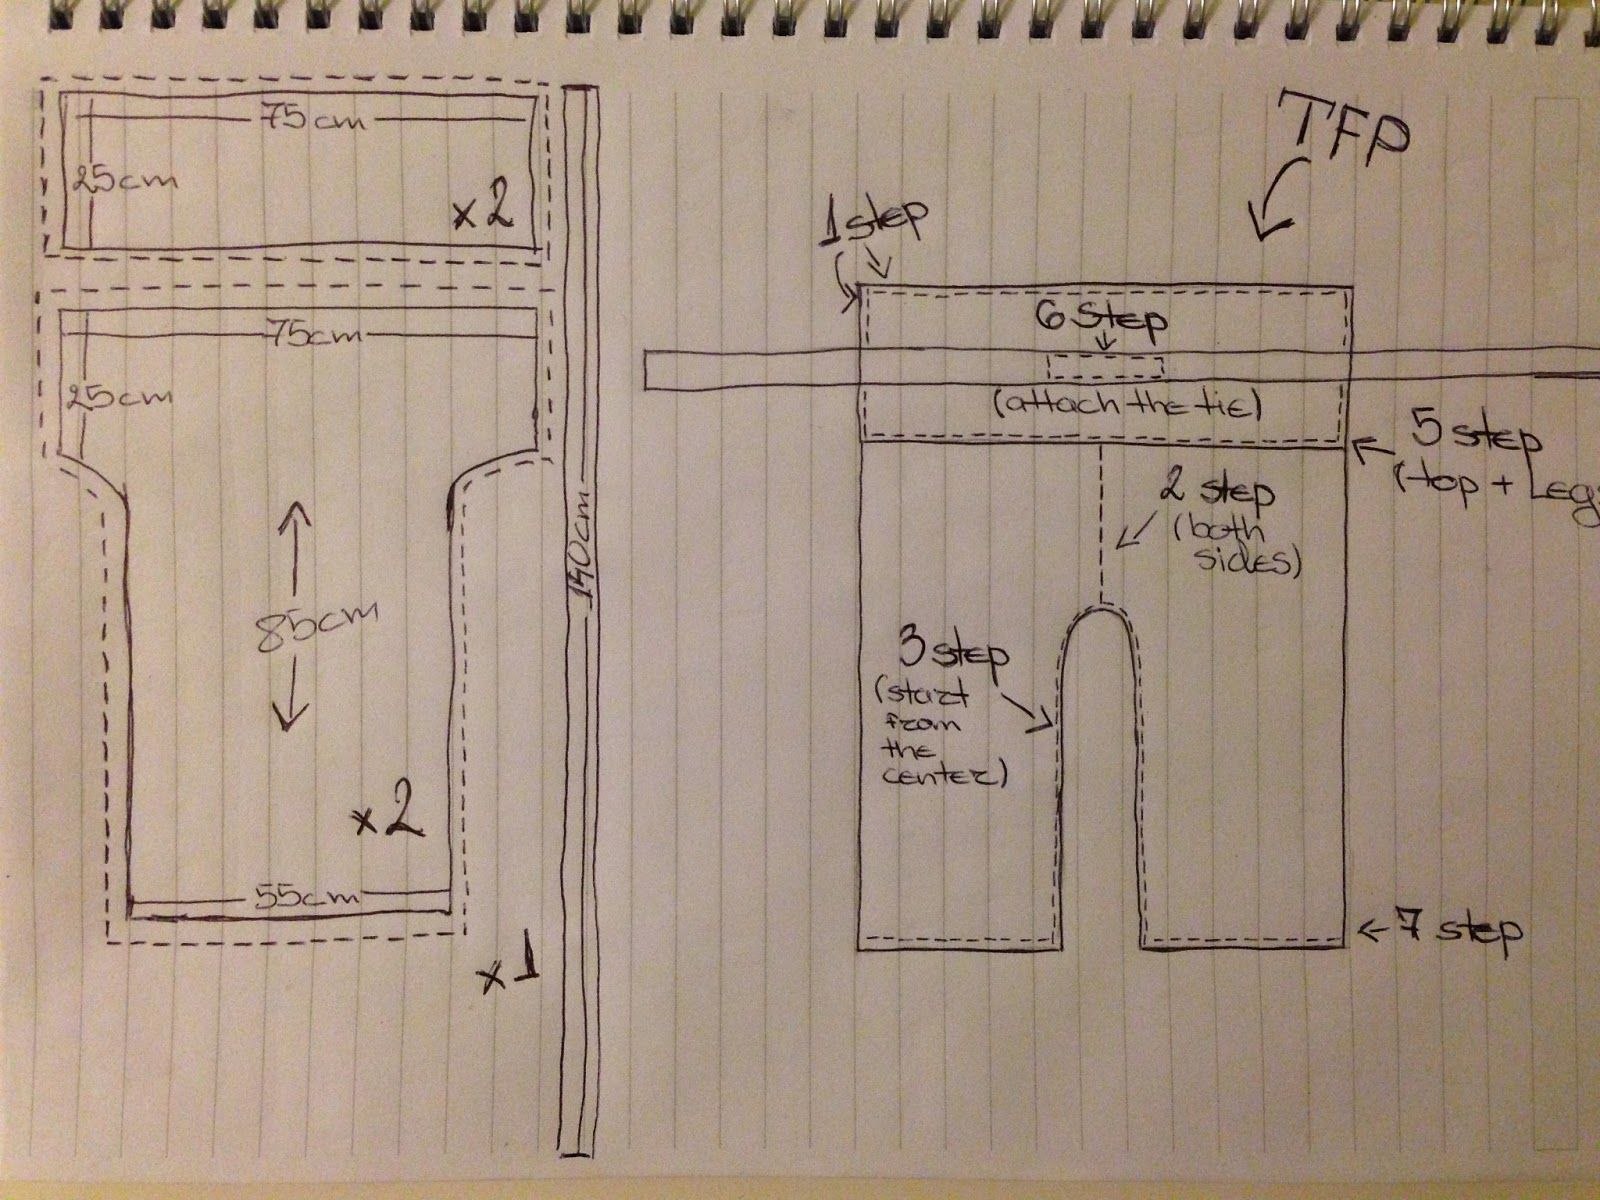 75cm
25cm
x2
75cm
25cm
85cm
x2
55cm
x1
140cm
TFP
1 step
6 Step
(attach the tie)
5 step
(top + Legs
2 step
(both
sides)
3 step
(start
from
the
center)
7 step